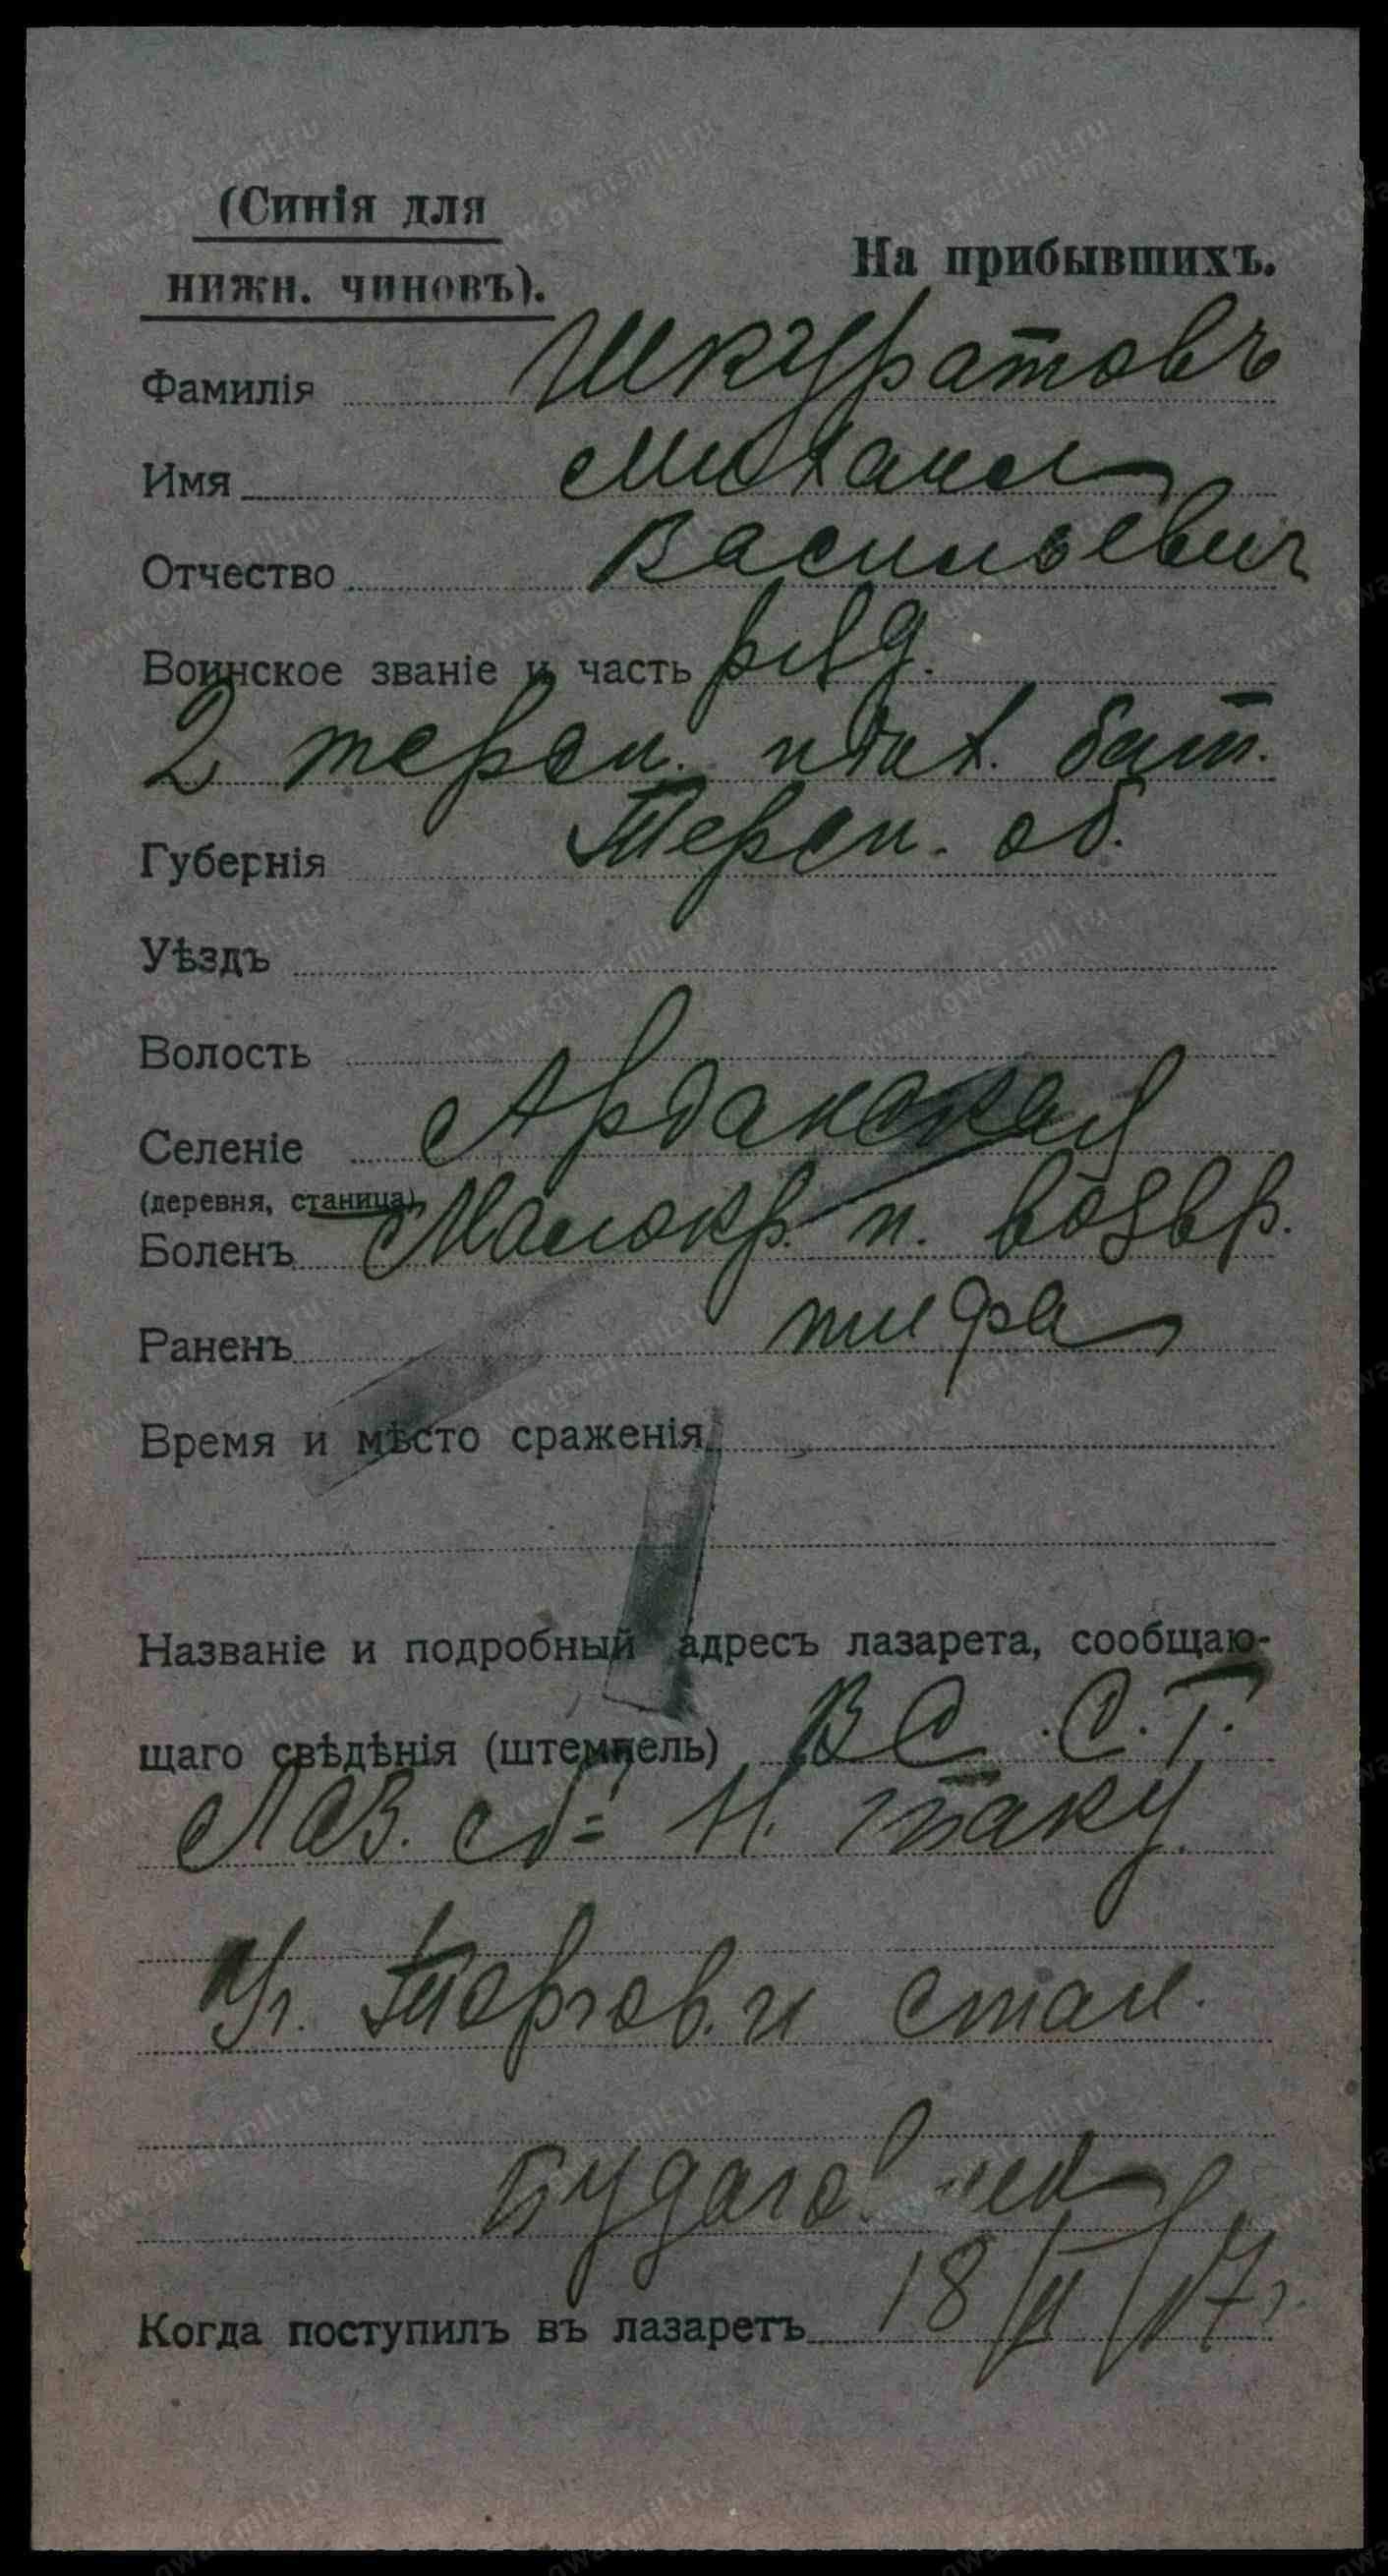 (Синія для
нижн. чиновъ).
На прибывшихъ.
Фамилія Шкуратовъ
Имя Михаил
Отчество Васильевич
Воинское званіе и часть ряд.
2 терск. пласт. бат.
Губернія Терск. об.
Уѣздъ
Волость
Селеніе Ардонская
(деревня, станица)
Боленъ Малокр. п. возвр.
Раненъ тифа
Время и мѣсто сраженія
Названіе и подробный адресъ лазарета, сообщаю-
щаго свѣдѣнія (штемпель) В С. С. Г.
Лаз. Н. Баку
Уг. Торгов. и Стан.
Будагов
Когда поступилъ въ лазаретъ 18/II/17г.